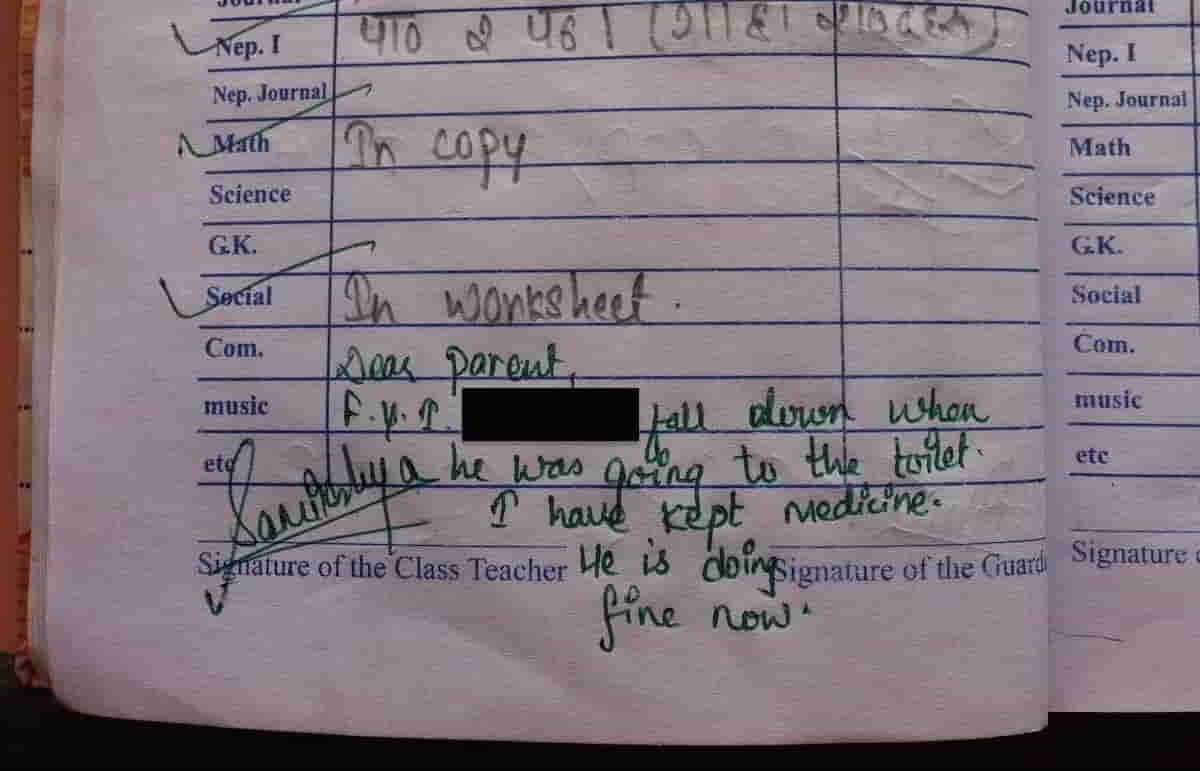 Journal
Nep. I पाठ २ पढ ।
Nep. Journal
Math In copy
Science
G.K.
Social In worksheet.
Com. Dear parent,
music F.y.I. fall down when
etc he was going to the toilet.
I have kept medicine.
Signature of the Class Teacher He is doing Signature of the Guard
fine now.
Journal
Nep. I
Nep. Journal
Math
Science
G.K.
Social
Com.
music
etc
Signature